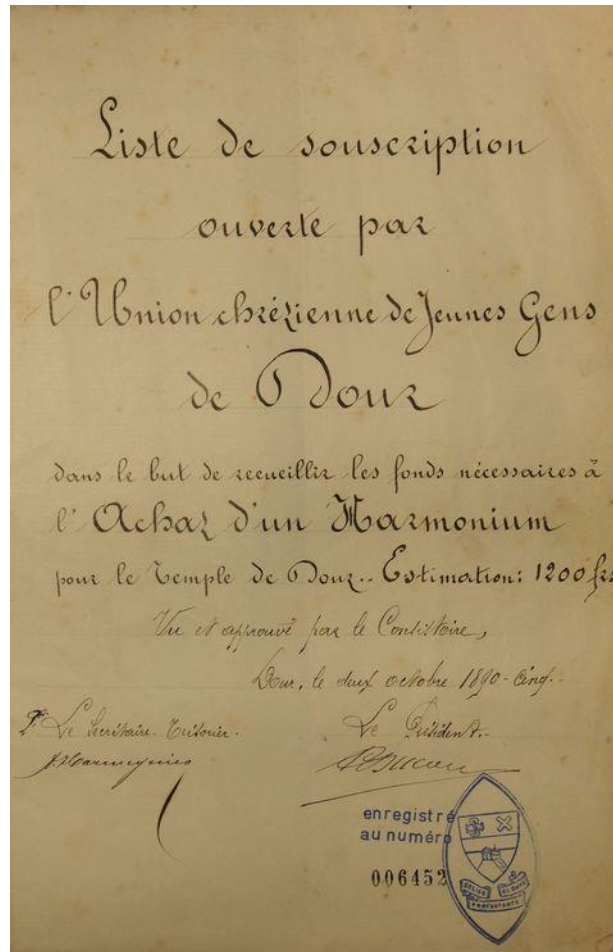 Liste de souscription
ouverte par
l'Union chrétienne de Jeunes Gens
de Dour
dans le but de recueillir les fonds nécessaires à
l'Achat d'un Harmonium
pour le Temple de Dour.. Estimation: 1200 frs
Vu et approuvé par le Consistoire,
Dour, le deux octobre 1890-cinq.-
Pr Le Secrétaire-Trésorier. Le Président.-
enregistré
au numéro
006452
EGLISE PROTESTANTE